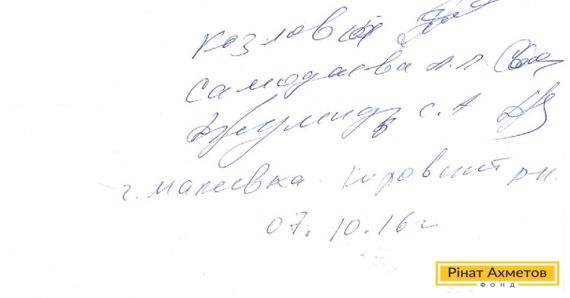 Козлов
Самодаева А.П.
С.А
г. Макеевка. Кировский рн.
07.10.16г
Рінат Ахметов
ФОНД